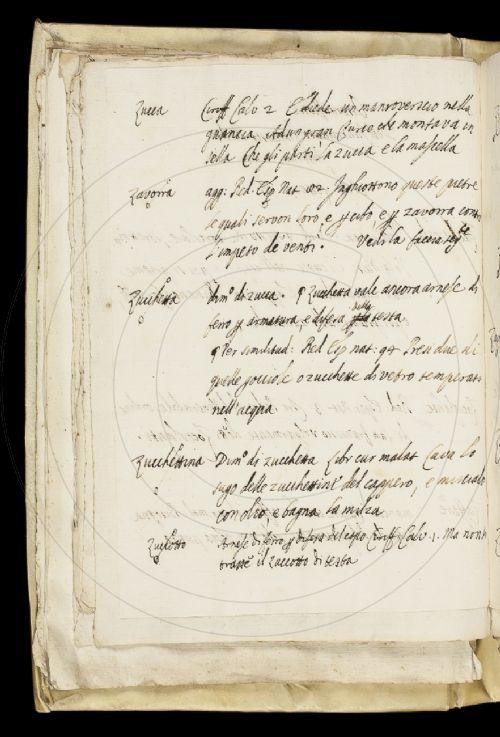 Zucca Ciriff Calv 2 E diede un manroverscio nella
guancia Ad un gran Turco che montava in
sella Che gli partì la zucca e la mascella
Zavorra agg. Red. Esp Nat 102. Inghiottono queste pietre
le quali servon loro e p cibo, e p zavorra contro
l'impeto de venti. Vedi la facciata seg.te
Zucchetta Dim.o di zucca. ¶ Zucchetta vale ancora arnese di
ferro p armatura, e difesa della testa
¶ Per similitud: Red Esp nat: 94 Presi due di
quelle gocciole o zucchette di vetro temperato
nell'acqua
Zucchettina Dim.o di zucchetta Libr cur malat Cava lo
sugo delle zucchettine del cappero, e miscialo
con olio, e bagna la milza
Zuccotto Arnese di ferro p difesa del capo Ciriff. Calv. 1. Ma non
trasse il zuccotto di testa